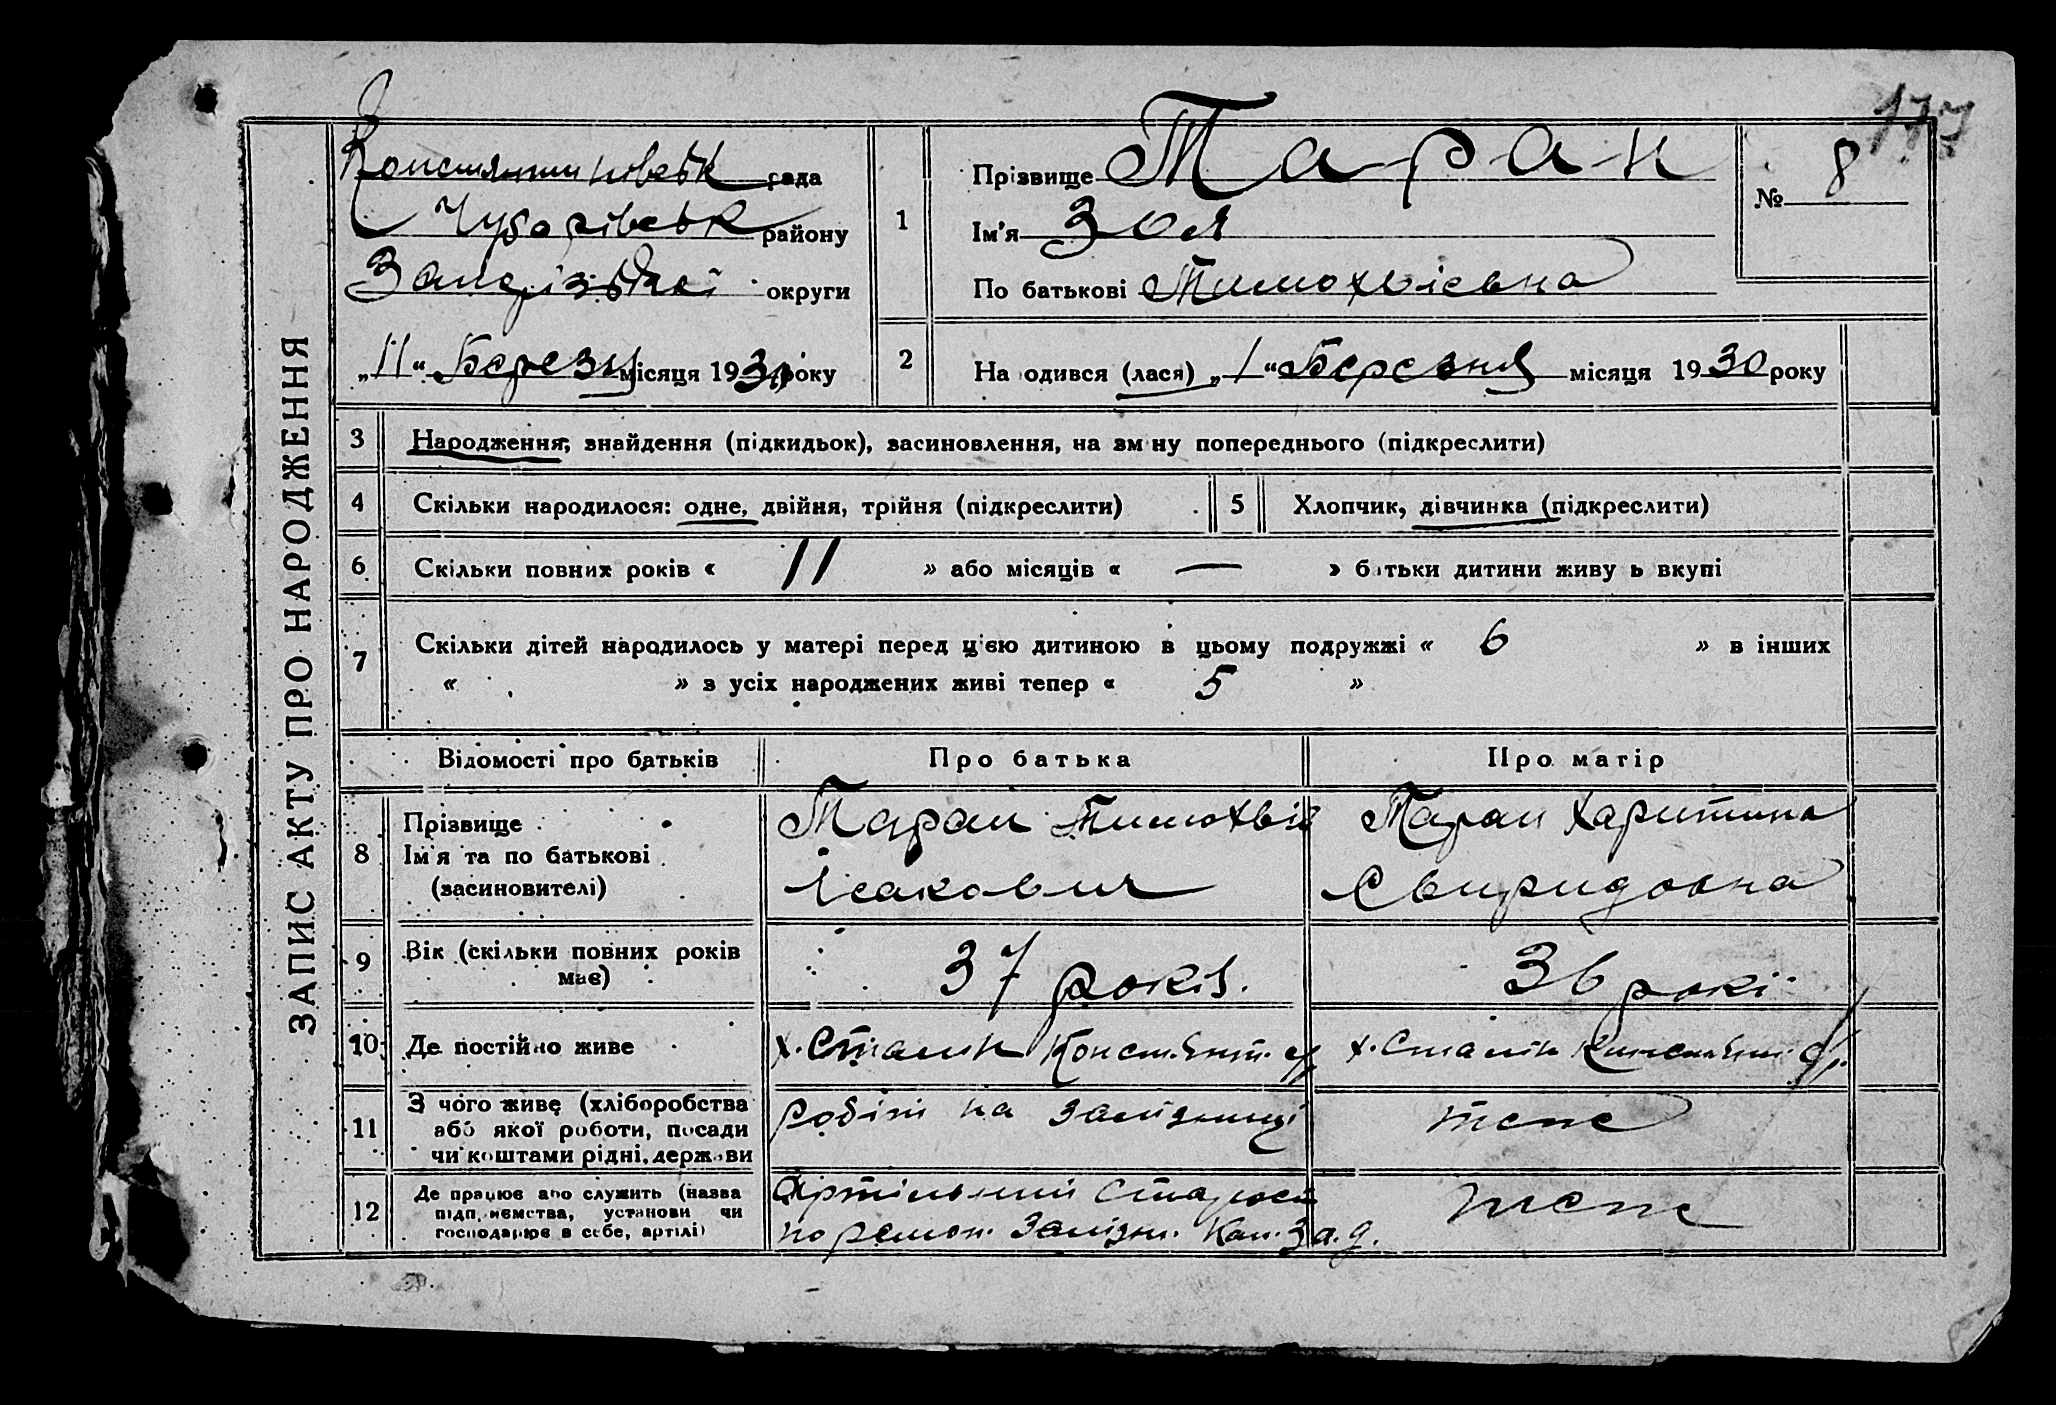 177
ЗАПИС АКТУ ПРО НАРОДЖЕННЯ
Констянтиновськ рада
Чубарівськ району
Запорізької округи
„11“ Березн місяця 1930 року
1
Прізвище Таран
Ім'я Зоя
По батькові Тимохвієвна
№ 8
2
На одився (лася) „1“ Березня місяця 1930 року
3 Народження, знайдення (підкидьок), засиновлення, на зм ну попереднього (підкреслити)
4 Скільки народилося: одне, двійня, трійня (підкреслити) 5 Хлопчик, дівчинка (підкреслити)
6 Скільки повних років « 11 » або місяців « — » батьки дитини живу ь вкупі
7 Скільки дітей народилось у матері перед цією дитиною в цьому подружжі « 6 » в інших
« » з усіх народжених живі тепер « 5 »
Відомості про батьків Про батька Про матір
8 Прізвище
Ім'я та по батькові
(засиновителі)
Таран Тимохвій
Ісакович
Таран Харитина
Свиридовна
9 Вік (скільки повних років
має)
37 років.
36 рокі
10 Де постійно живе
х. Сталін Констянт. с/р
х. Сталін Констянт. с/р.
11 З чого живе (хліборобства
або якої роботи, посади
чи коштами рідні, держави
робіт на залізниці
теж
12 Де працює або служить (назва
підприємства, установи чи
господарює в себе, артілі)
Артільний староста
по ремон. Залізн. Кат. З а. д.
теж